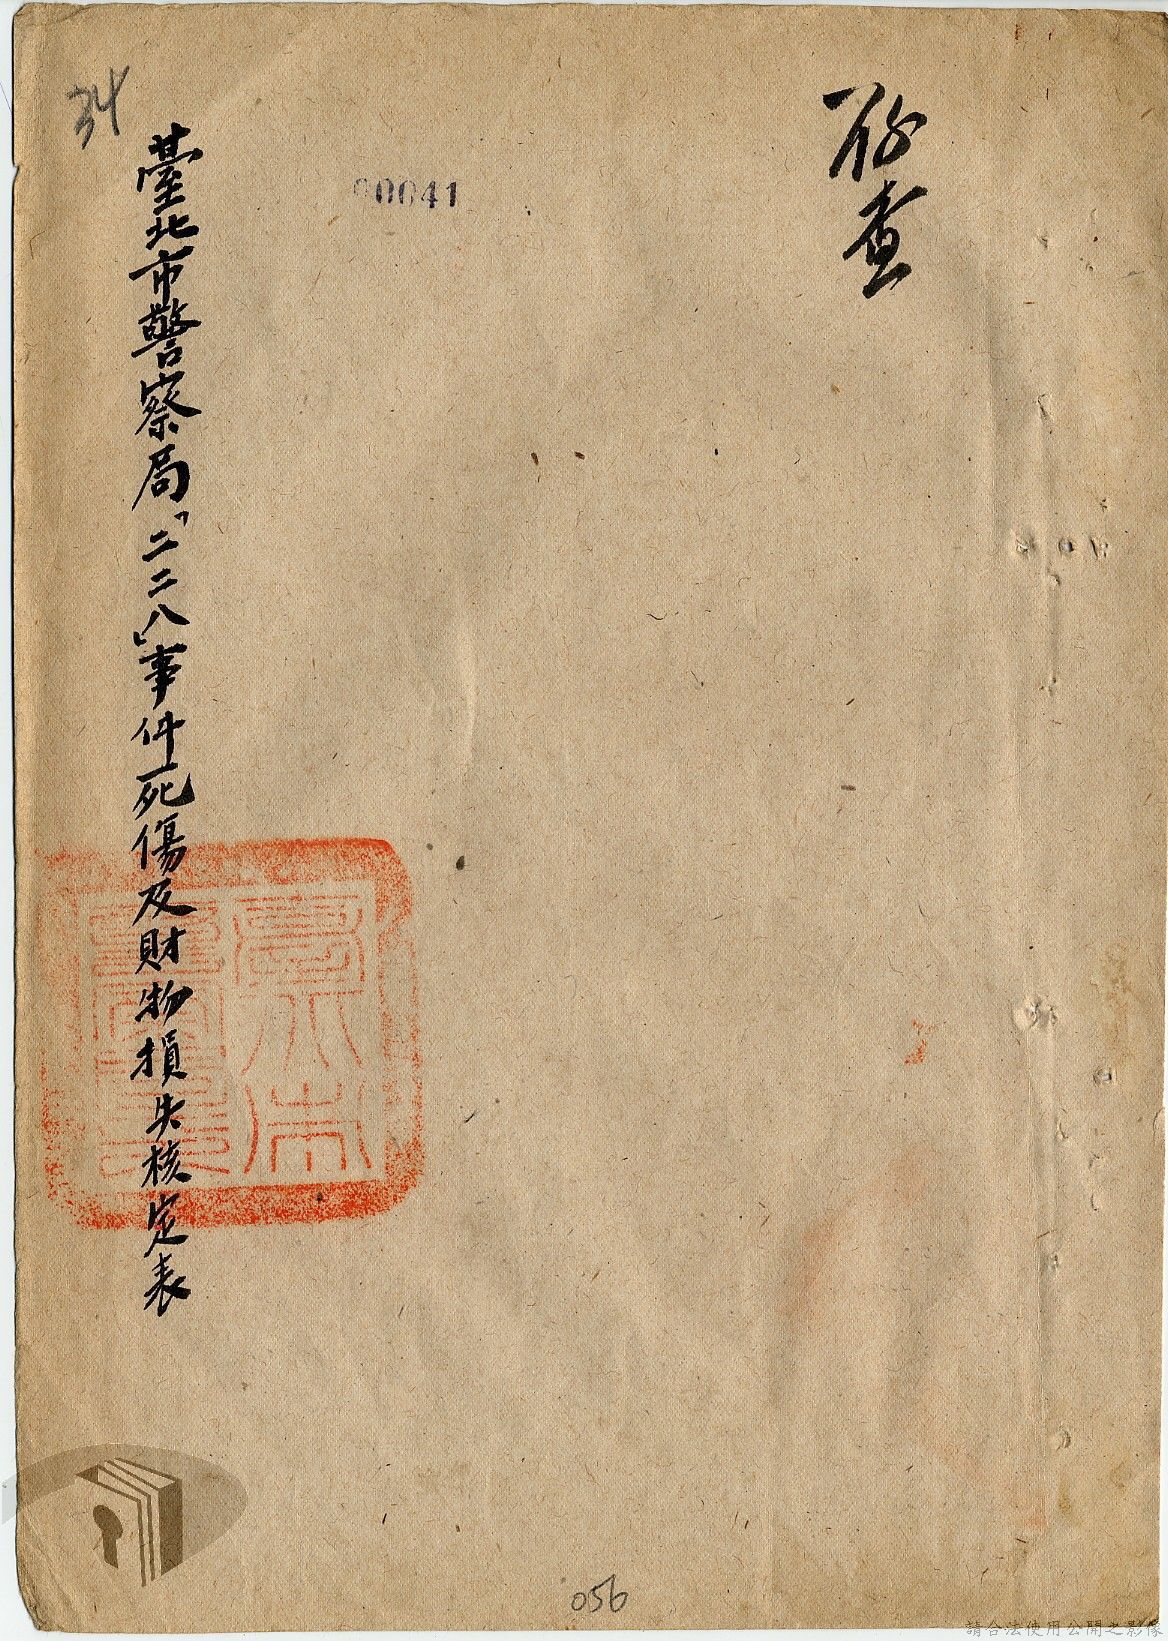 存查
00041
34
臺北市警察局「二二八」事件死傷及財物損失核定表
056
請合法使用公開之影像